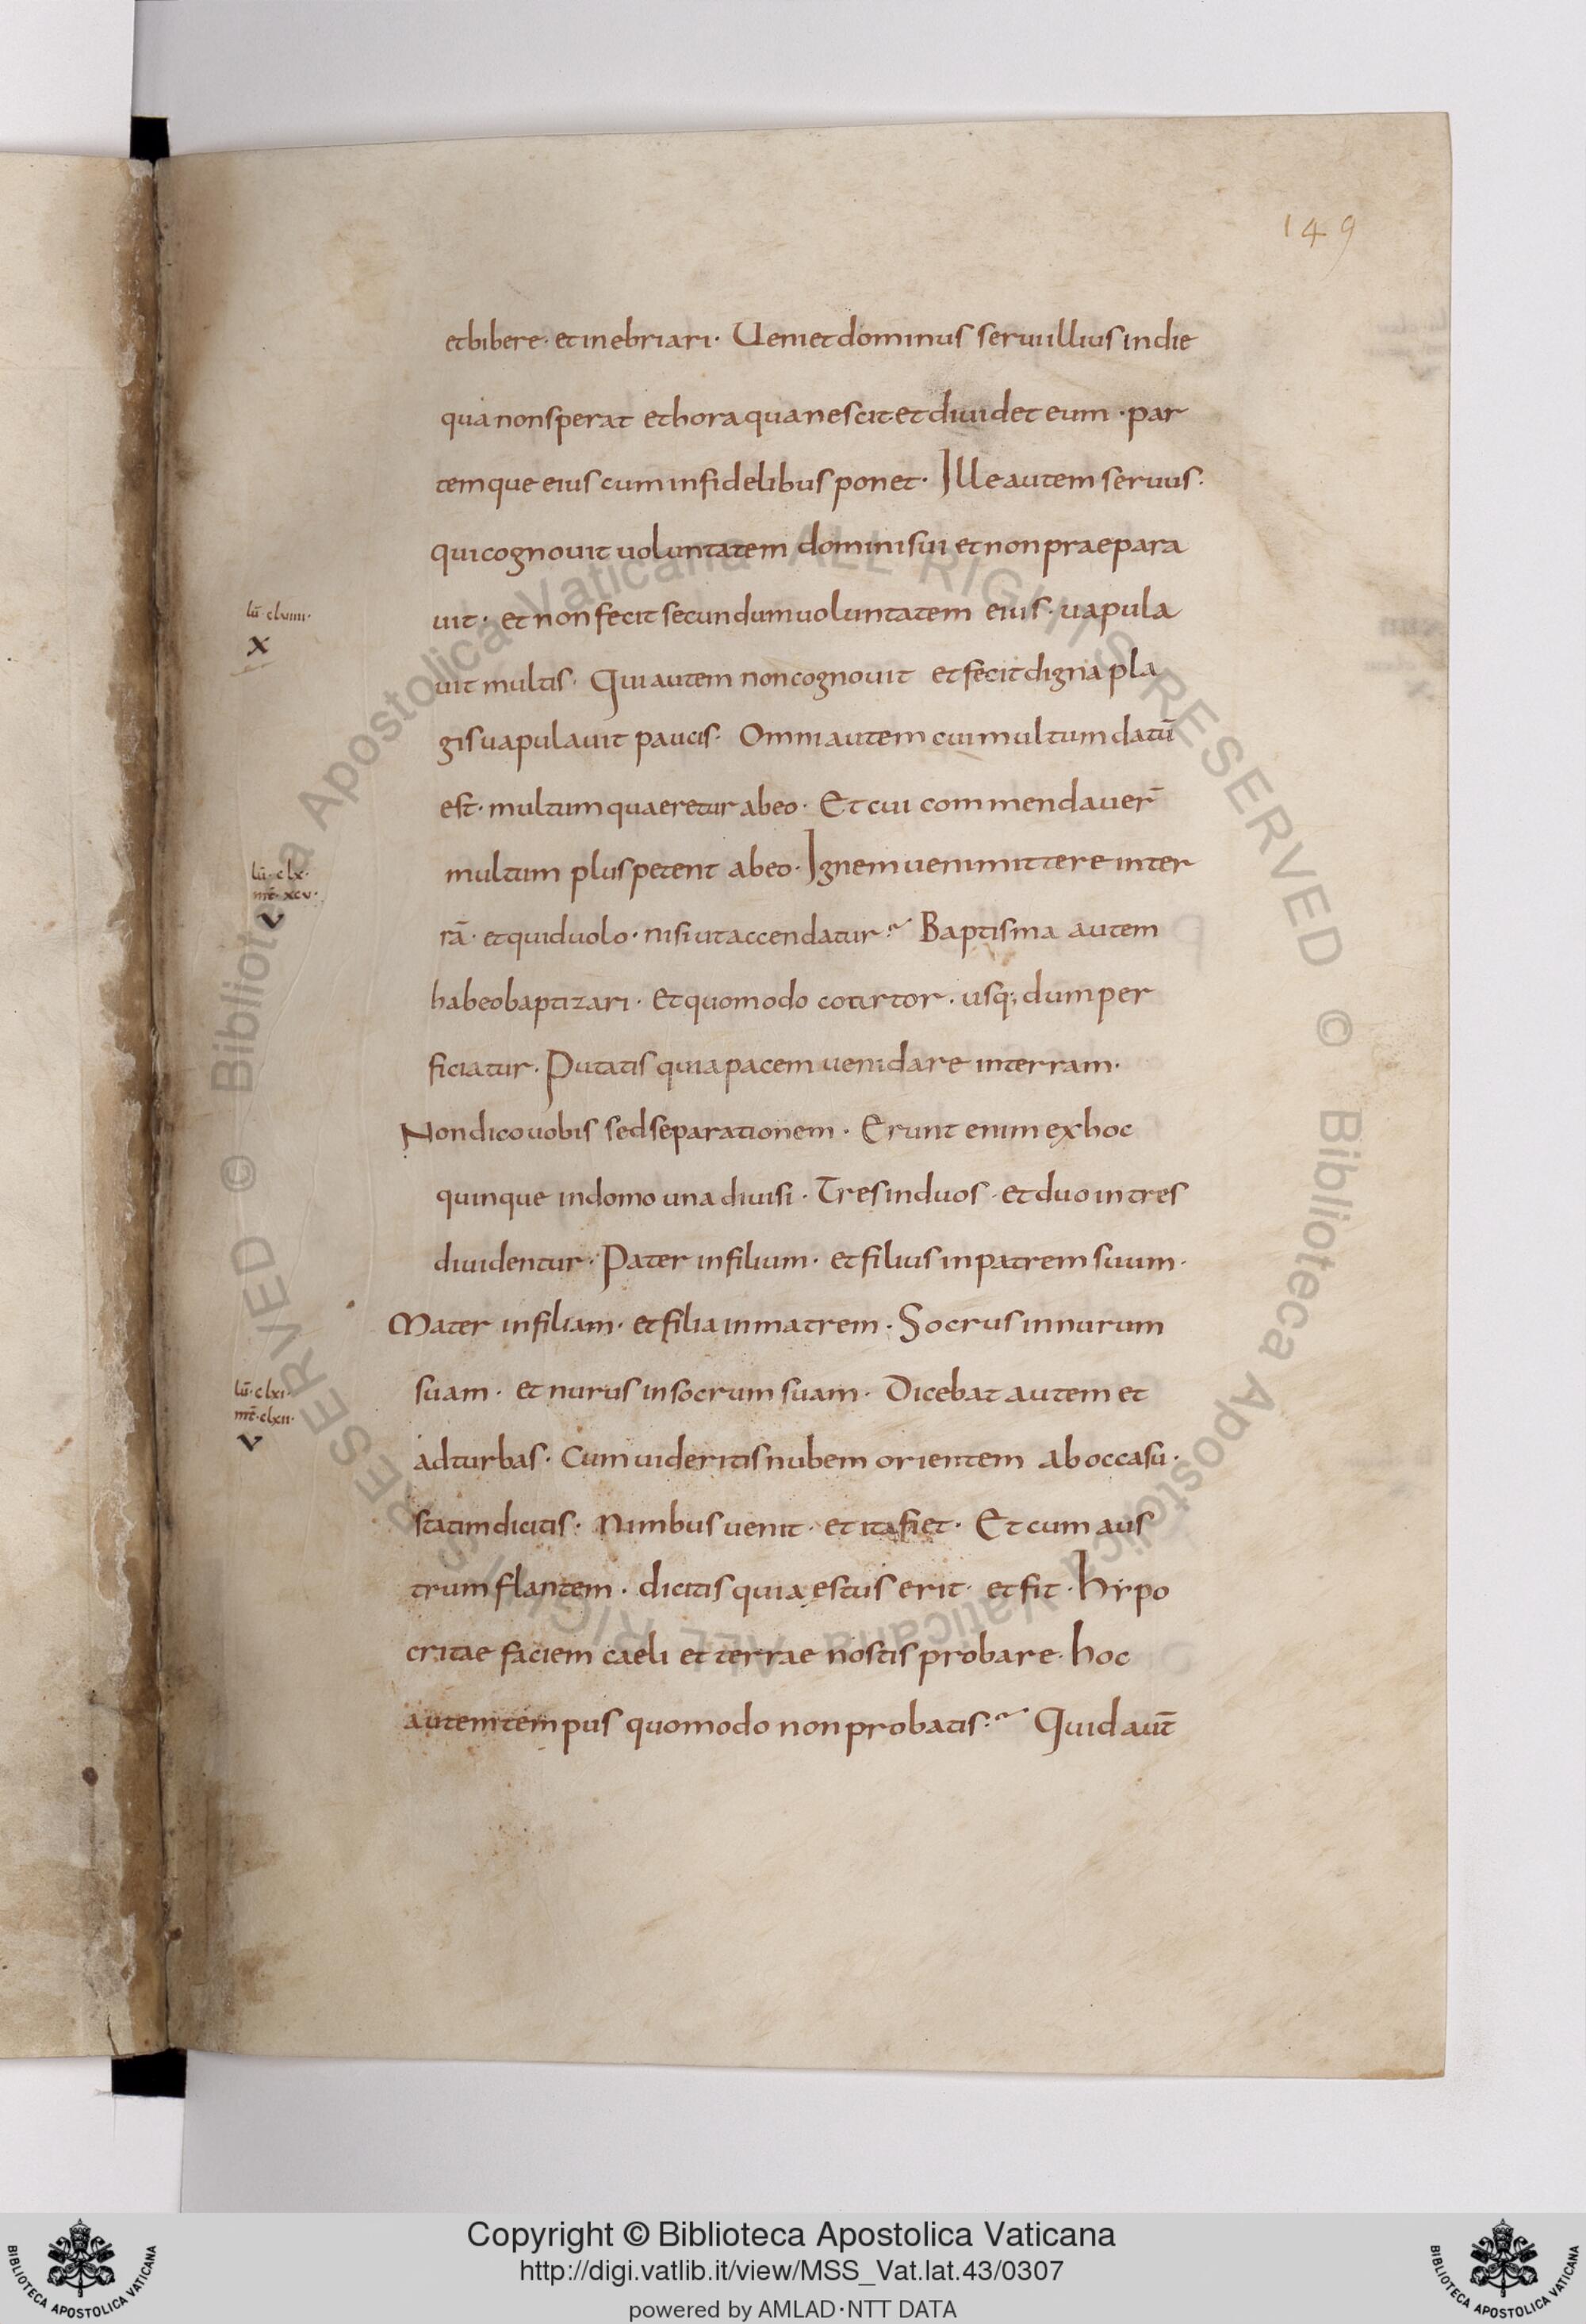 149
et bibere · et inebriari · Ueniet dominus serui illius in die
qua non sperat et hora qua nescit · et diuidet eum · par
temque eius cum infidelibus ponet · Ille autem seruus ·
qui cognouit uoluntatem domini sui et non praepara
uit · et non fecit secundum uoluntatem eius · uapula
lū · clviiii ·
X
uit multis · Qui autem non cognouit et fecit digna pla
gis uapulauit paucis · Omni autem cui multum datū
est · multum quaeretur ab eo · Et cui commendauer̄
multum plus petent ab eo · Ignem ueni mittere in ter
lū · clx ·
mt̄ · xcv ·
V
rā · et quid uolo · nisi ut accendatur? Baptisma autem
habeo baptizari · et quomodo cotirtor · usq; dum per
ficiatur · Putatis quia pacem ueni dare in terram ·
Non dico uobis sed separationem · Erunt enim ex hoc
quinque in domo una diuisi · Tres in duos · et duo in tres
diuidentur · Pater in filium · et filius in patrem suum ·
Mater in filiam · et filia in matrem · Socrus in nurum
suam · et nurus in socrum suam · Dicebat autem et
lū · clxi ·
mt̄ · clxii ·
V
ad turbas · Cum uideritis nubem orientem ab occasu ·
statim dicitis · Nimbus uenit · et ita fiet · Et cum aus
trum flantem · dicitis quia ęstus erit · et fit · Hypo
critae faciem caeli et terrae nostis probare · hoc
autem tempus quomodo non probatis? Quid aut̄
Copyright © Biblioteca Apostolica Vaticana
http://digi.vatlib.it/view/MSS_Vat.lat.43/0307
powered by AMLAD·NTT DATA
BIBLIOTECA APOSTOLICA VATICANA
BIBLIOTECA APOSTOLICA VATICANA
© Biblioteca Apostolica Vaticana ALL RIGHTS RESERVED © Biblioteca Apostolica Vaticana ALL RIGHTS RESERVED